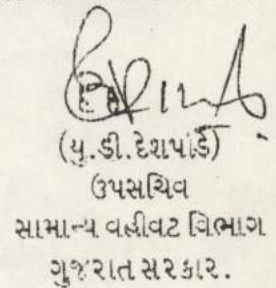 (યુ.ડી.દેશપાંડે)
ઉપસચિવ
સામાન્ય વહીવટ વિભાગ
ગુજરાત સરકાર.